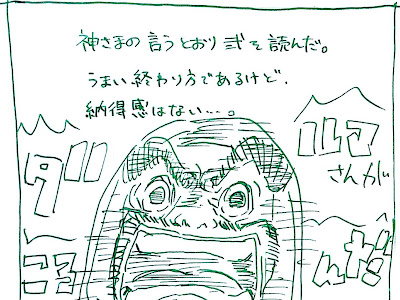 神さまの言うとおり弐を読んだ。
うまい終わり方であるけど、
納得感はない…。
ダ
ルマ
さんが
ころ
んだ